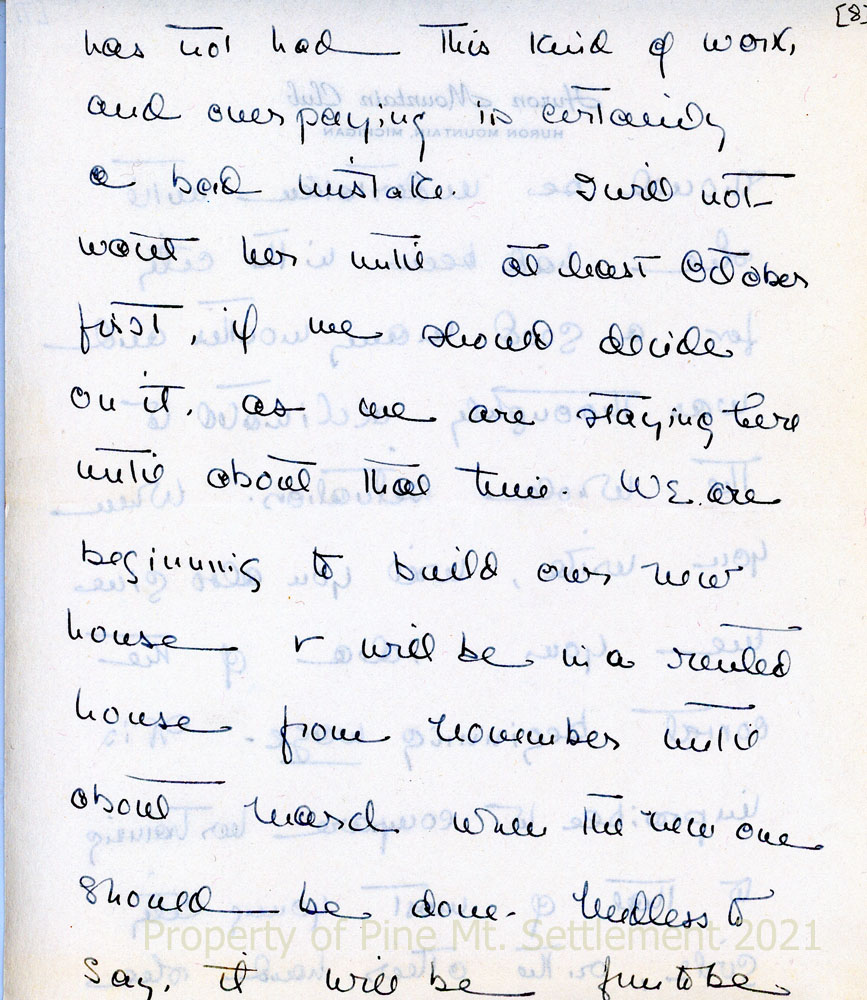 [8]
has not had this kind of work,
and overpaying is certainly
a bad mistake. I will not
want her until at least October
first, if we should decide
on it, as we are staying here
until about that time. We are
beginning to build our new
house & will be in a rented
house from November until
about March when the new one
should be done. Needless to
say, it will be fun to be
Property of Pine Mt. Settlement 2021
Huron Mountain Club
HURON MOUNTAIN, MICHIGAN